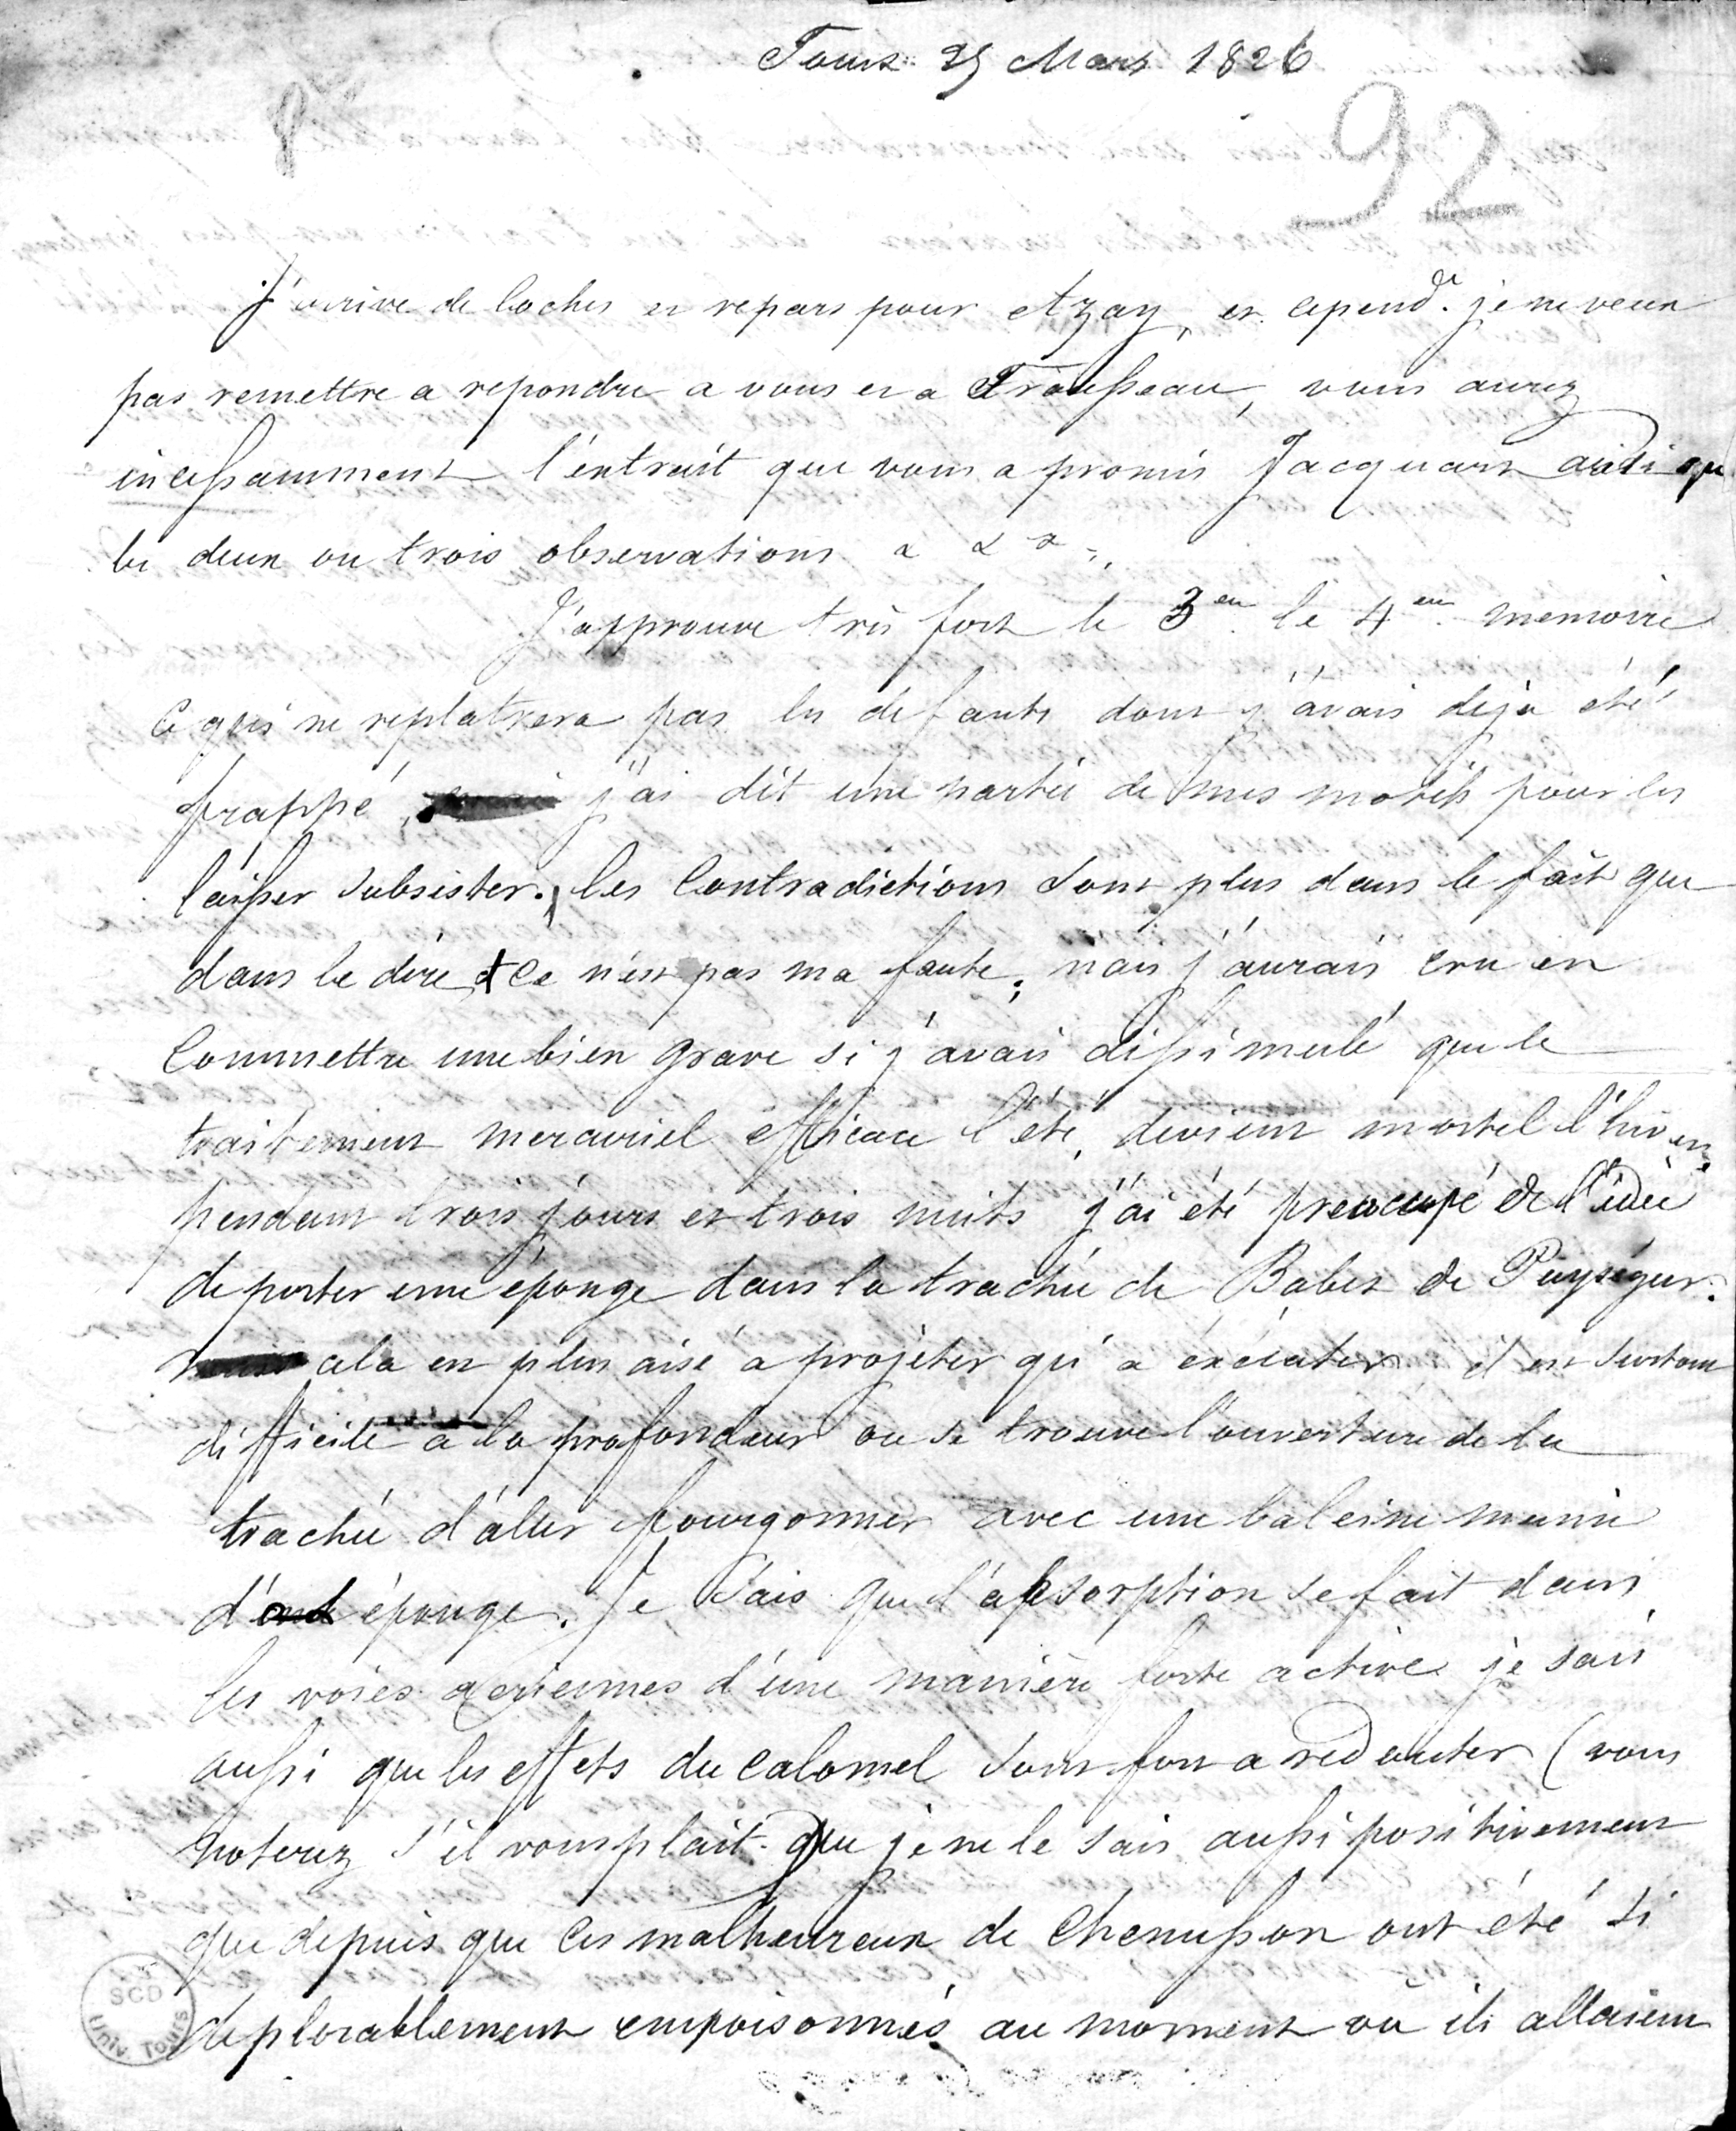 Tours 25 Mars 1826
92
J'arrive de Loches et repars pour Azay, et cepend.t je ne veux
pas remettre a repondre a vous et a Trousseau, vous aurez
incessamment l'extrait que vous a promis Jacquart ainsi que
les deux ou trois observations &a &a
J'approuve très fort le 3em le 4em memoire
ce qui ne replatrera pas les defauts dont j'avais deja été
frappé, j'ai dit une partie de mes motifs pour les
laisser subsister. les Contradictions sont plus dans le fait que
dans le dire & ce n'est pas ma faute; mais j'aurais cru en
Commettre une bien grave si j'avais dissimulé que le
traitement mercuriel efficace l'été, devient mortel l'hiver.
pendant trois jours et trois nuits j'ai été preoccupé de l'idée
de porter une éponge dans la trachée de Babet de Puységur.
cela est plus aisé a projèter qu'a éxécuter il est surtout
difficile a la profondeur ou se trouve l'ouverture de la
trachée d'aller fourgonner avec une baleine munie
d'une éponge. Je sais que l'absorption se fait dans
les voies aeriennes d'une manière forte active je sais
aussi que les effets du calomel sont fort a redouter (vous
noterez s'il vous plait que je ne le sais aussi positivement
que depuis que ces malheureux de Chenusson ont été si
deplorablement empoisonnés au moment où ils allaient
SCD
Univ. Tours